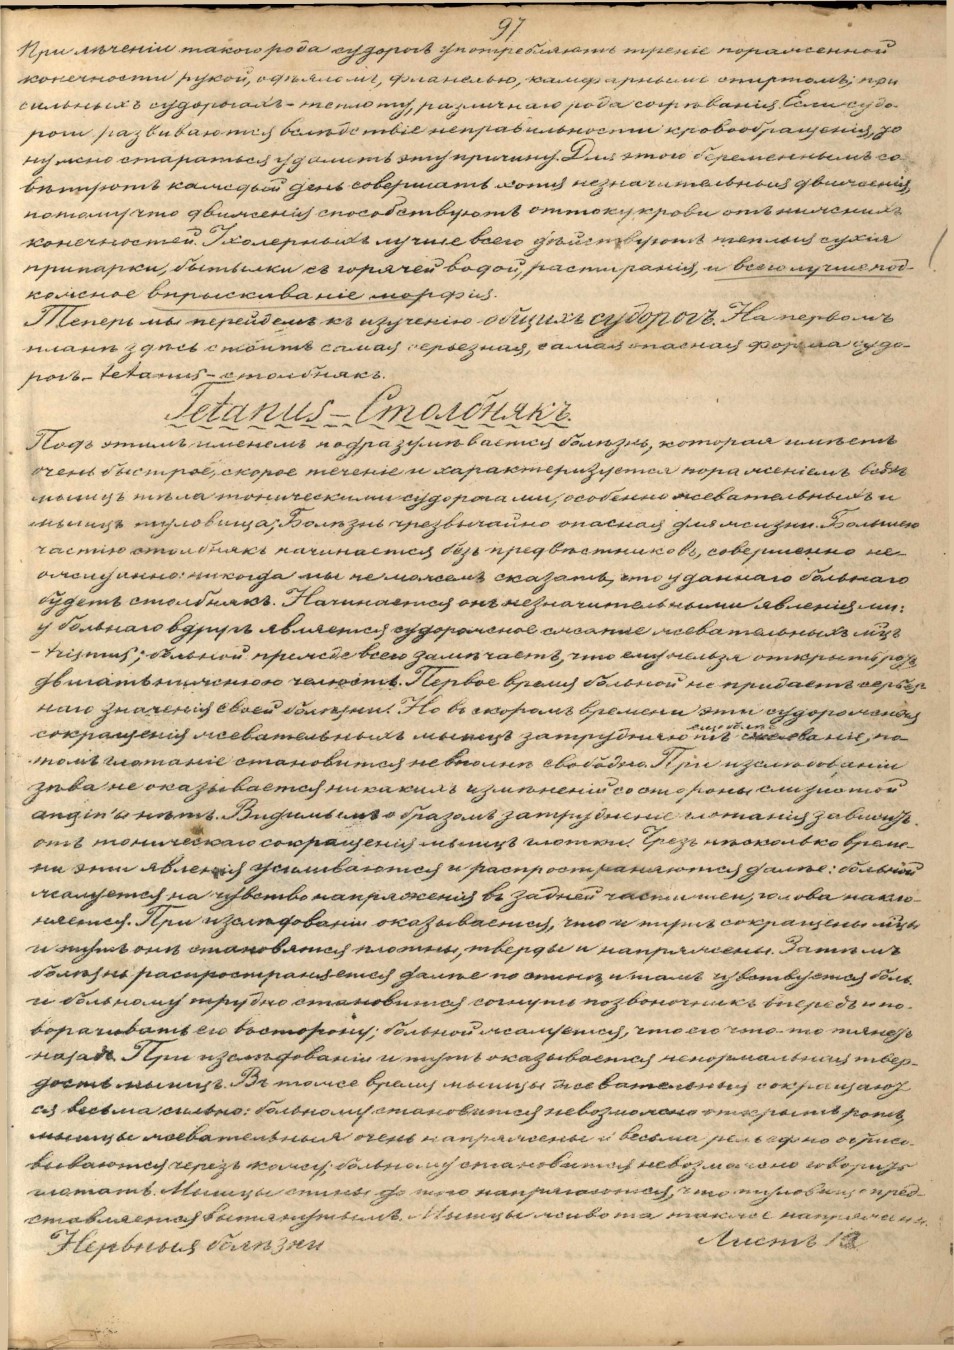 97
При лѣченіи такого рода судорогъ употребляютъ треніе пораженной
конечности рукой, одѣяломъ, фланелью, камфарнымъ спиртомъ; при
сильныхъ судорогахъ – теплоту, различнаго рода согрѣванія. Если судо-
роги развиваются вслѣдствіе неправильности кровообращенія, то
нужно стараться удалить эту причину. Для этого беременнымъ со-
вѣтуютъ каждый день совершать хотя незначительныя движенія,
потому что движенія способствуютъ оттоку крови отъ нижнихъ
конечностей. У холерныхъ лучше всего дѣйствуютъ теплыя сухія
припарки, бутылки съ горячей водой, растиранія, и всего лучше под-
кожное впрыскиваніе морфія.
Теперь мы перейдемъ къ изученію общихъ судорогъ. На первомъ
планѣ здѣсь стоитъ самая серьезная, самая опасная форма судо-
рогъ – tetanus – столбнякъ.
Tetanus – Столбнякъ.
Подъ этимъ именемъ подразумѣвается болѣзнь, которая имѣетъ
очень быстрое, скорое теченіе и характеризуется пораженіемъ всѣхъ
мышцъ тѣла тоническими судорогами, особенно жевательныхъ и
мышцъ туловища; Болѣзнь чрезвычайно опасная для жизни. Большею
частію столбнякъ начинается безъ предвѣстниковъ, совершенно не-
ожиданно: никогда мы не можемъ сказать, что у даннаго больнаго
будетъ столбнякъ. Начинается онъ незначительными явленіями:
у больнаго вдругъ является судорожное сжатіе жевательныхъ мцъ
– trismus; больной прежде всего замѣчаетъ, что ему нельзя открыть ротъ,
двигать нижнюю челюсть. Первое время больной не придаетъ серьез-
наго значенія своей болѣзни. Но въ скоромъ времени эти судорожныя
сокращенія жевательныхъ мышцъ затрудняютъ жеваніе, по-
томъ глотаніе становится невполнѣ свободно. При изслѣдованіи
зѣва не оказывается никакихъ измѣненій со стороны слизистой
angin'ы нѣтъ. Видимымъ образомъ затрудненіе глотанія зависитъ
отъ тоническаго сокращенія мышцъ глотки. Чрезъ нѣсколько време-
ни эти явленія усиливаются и распространяются далѣе: больной
жалуется на чувство напряженія въ задней части шеи, голова накло-
няется. При изслѣдованіи оказывается, что и тутъ сокращены мцы
и тутъ онѣ становятся плотны, тверды и напряжены. Затѣмъ
болѣзнь распространяется далѣе по спинѣ и тамъ чувствуется боль
и больному трудно становится согнуть позвоночникъ впередъ и по-
ворачивать его въ сторону; больной жалуется, что его что-то тянетъ
назадъ. При изслѣдованіи и тутъ оказывается ненормальная твер-
дость мышцъ. Въ тоже время мышцы жевательныя сокращают
ся весьма сильно: больному становится невозможно открыть ротъ,
мышцы жевательныя очень напряжены и весьма рельефно обрисо-
вываются черезъ кожу; больному становится невозможно говорить
глотать. Мышцы спины до того напрягаются, что туловище пред-
ставляется вытянутымъ. Мышцы живота также напряжены.
Нервныя болѣзни
Листъ